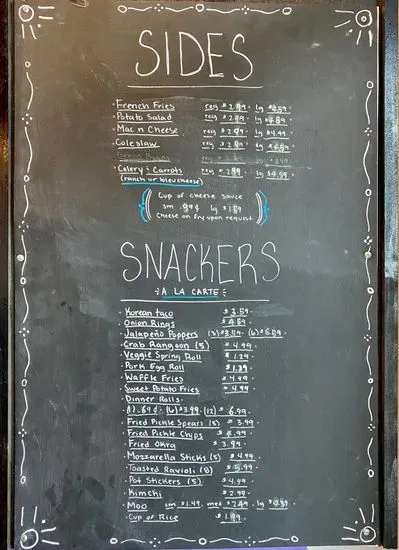 SIDES
· French Fries reg $2.99 · lg $4.59 ·
· Potato Salad reg $2.99 · lg $4.59 ·
· Mac n Cheese reg $2.99 · lg $4.99 ·
· Coleslaw reg $2.99 · lg $4.59 ·
· Celery & Carrots reg $2.99 · lg $4.59 ·
(ranch or bleu cheese)
Cup of cheese sauce
sm .89¢ lg $1.59
Cheese on fry upon request
SNACKERS
À LA CARTE
· Korean taco $3.59 ·
· Onion Rings $4.59 ·
· Jalapeño Poppers (3) $3.59 · (6) $6.59 ·
· Crab Rangoon (5) $4.99 ·
· Veggie Spring Roll $1.29 ·
· Pork Egg Roll $1.39 ·
· Waffle Fries $4.99 ·
· Sweet Potato Fries $4.99 ·
· Dinner Rolls ·
(1) .69¢ · (6) $3.99 · (12) $6.99 ·
· Fried Pickle Spears (5) $3.99 ·
· Fried Pickle Chips $4.99 ·
· Fried Okra $3.99 ·
· Mozzarella Sticks (5) $4.99 ·
· Toasted Ravioli (8) $5.99 ·
· Pot Stickers (5) $4.99 ·
· Kimchi $2.99 ·
· Moo sm $1.49 · med $2.49 · lg $4.59 ·
· Cup of Rice $1.99 ·